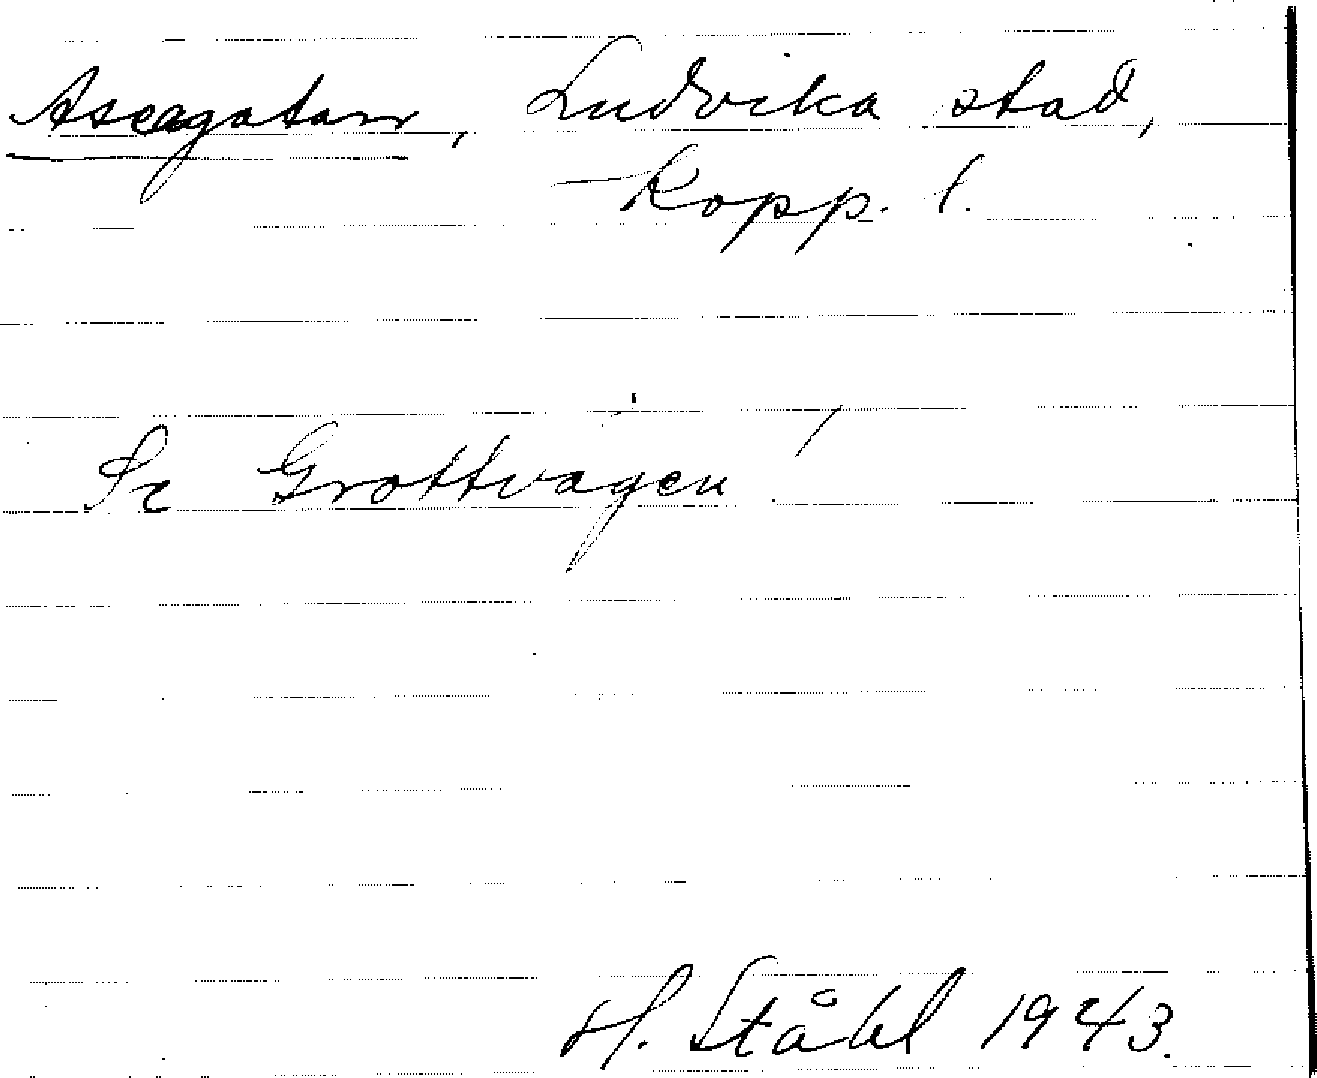 Aseagatan, Ludvika stad,
Kopp. l.
Se Grottvägen!
H. Ståhl 1943.